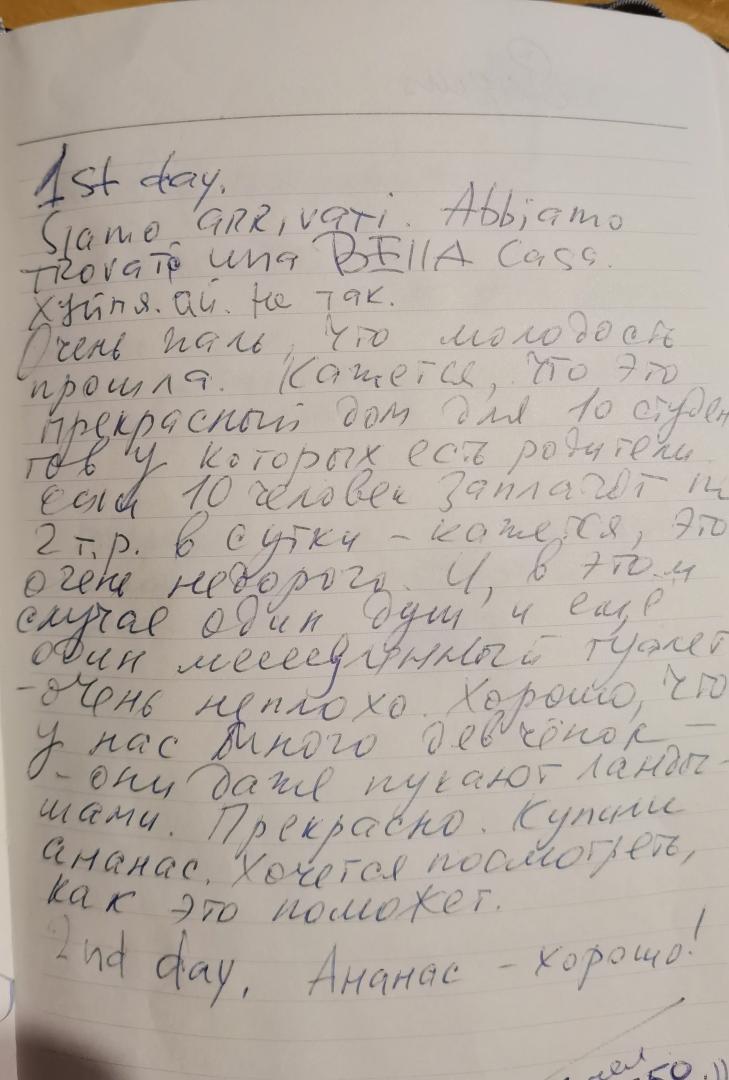 1st day.
Siamo arrivati. Abbiamo
trovato una BELLA casa.
Хуйня. ай. Не так.
Очень жаль, что молодость
прошла. Кажется, что это
прекрасный дом для 10 студен
тов у которых есть родители.
Если 10 человек заплатят по
2 т.р. в сутки - кажется, это
очень недорого. И, в этом
случае один душ и ещё
один туалет
- очень неплохо. Хорошо, что
у нас много девчёнок -
- они даже пукают ланды-
шами. Прекрасно. Купили
ананас. Хочется посмотреть,
как это поможет.
2nd day. Ананас - хорошо!